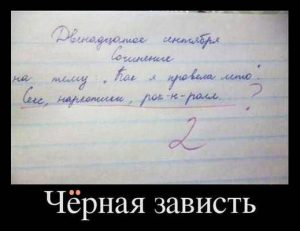 Двенадцатое сентября
Сочинение
на тему „Как я провела лето".
Секс, наркотики, рок-н-ролл.
?
2
Чёрная зависть